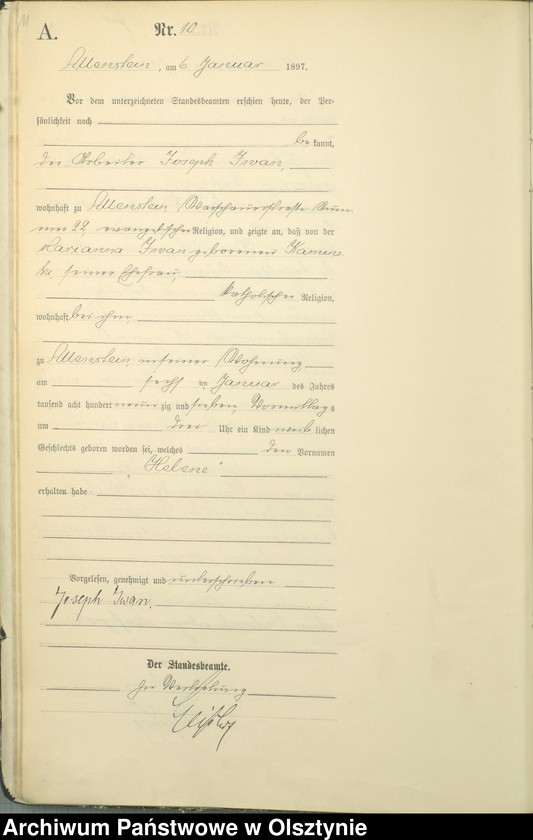 11
A.
Nr. 10
Allenstein, am 6 Januar 1897.
Vor dem unterzeichneten Standesbeamten erschien heute, der Per-
sönlichkeit nach
be kannt,
der Arbeiter Joseph Iwan,
wohnhaft zu Allenstein Warschauerstraße Num-
mer 22, evangelischer Religion, und zeigte an, daß von der
Marianna Iwan geborenen
seiner Ehefrau,
katholischer Religion,
wohnhaft bei ihm,
zu Allenstein, in seiner Wohnung
am sechs ten Januar des Jahres
tausend acht hundert neun zig und sieben, Vormittags
um drei Uhr ein Kind weib lichen
Geschlechts geboren worden sei, welches den Vornamen
"Helene"
erhalten habe
Vorgelesen, genehmigt und unterschrieben
Joseph Iwan.
Der Standesbeamte.
In Vertretung
Archiwum Państwowe w Olsztynie